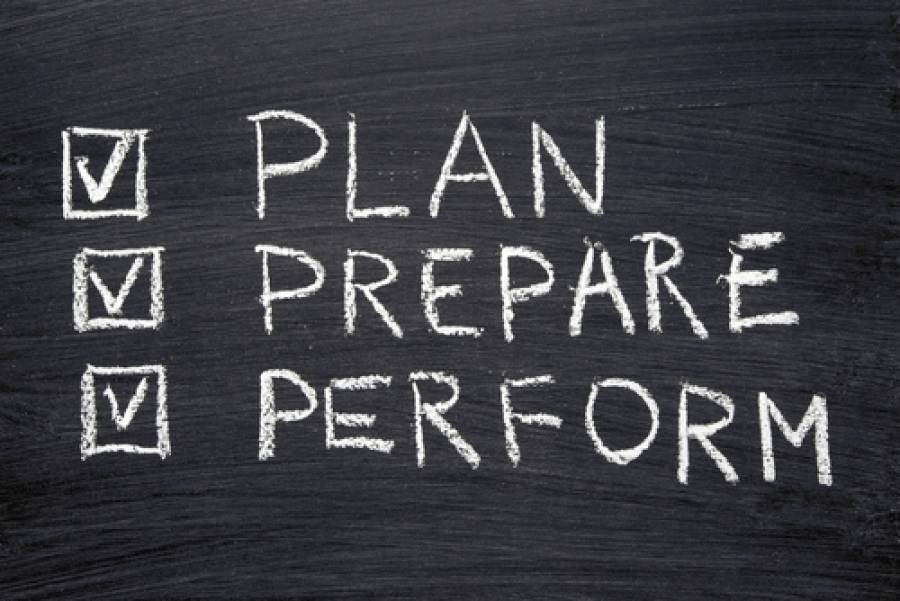 PLAN
PREPARE
PERFORM